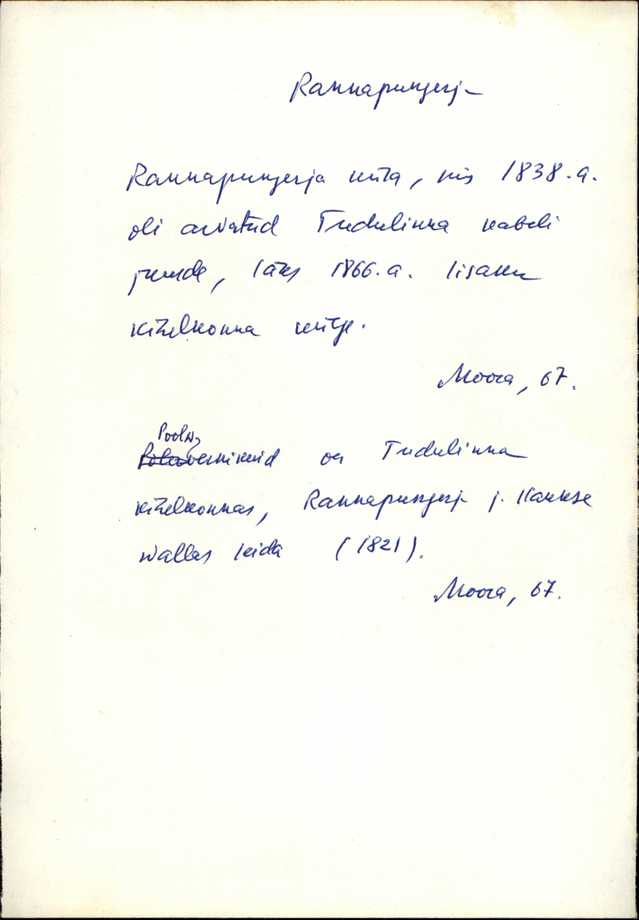 Rannapungerja
Rannapungerja küla, mis 1838.a.
oli arvatud Tudulinna kabeli
juurde, läks 1866.a. Iisaku
kihelkonna külge.
Moora, 67.
Poolv
vernikuid on Tudulinna
kihelkonnas, Rannapungerja j. Kaukse
wallas leida (1821).
Moora, 67.